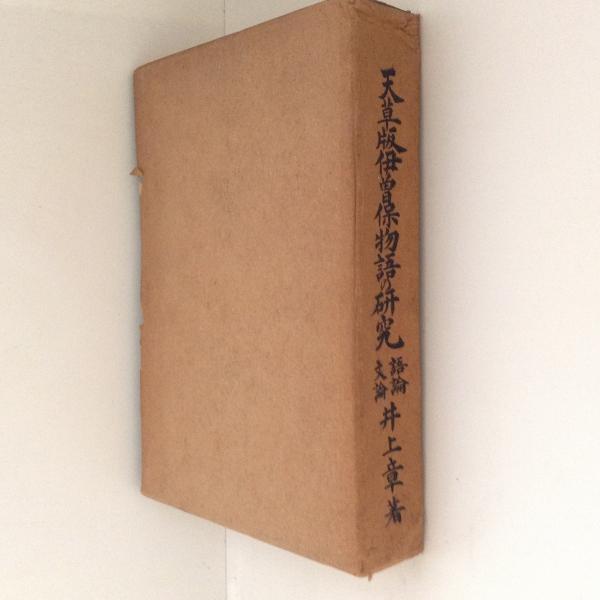 天草版伊曽保物語の研究
語論
文論
井上章著